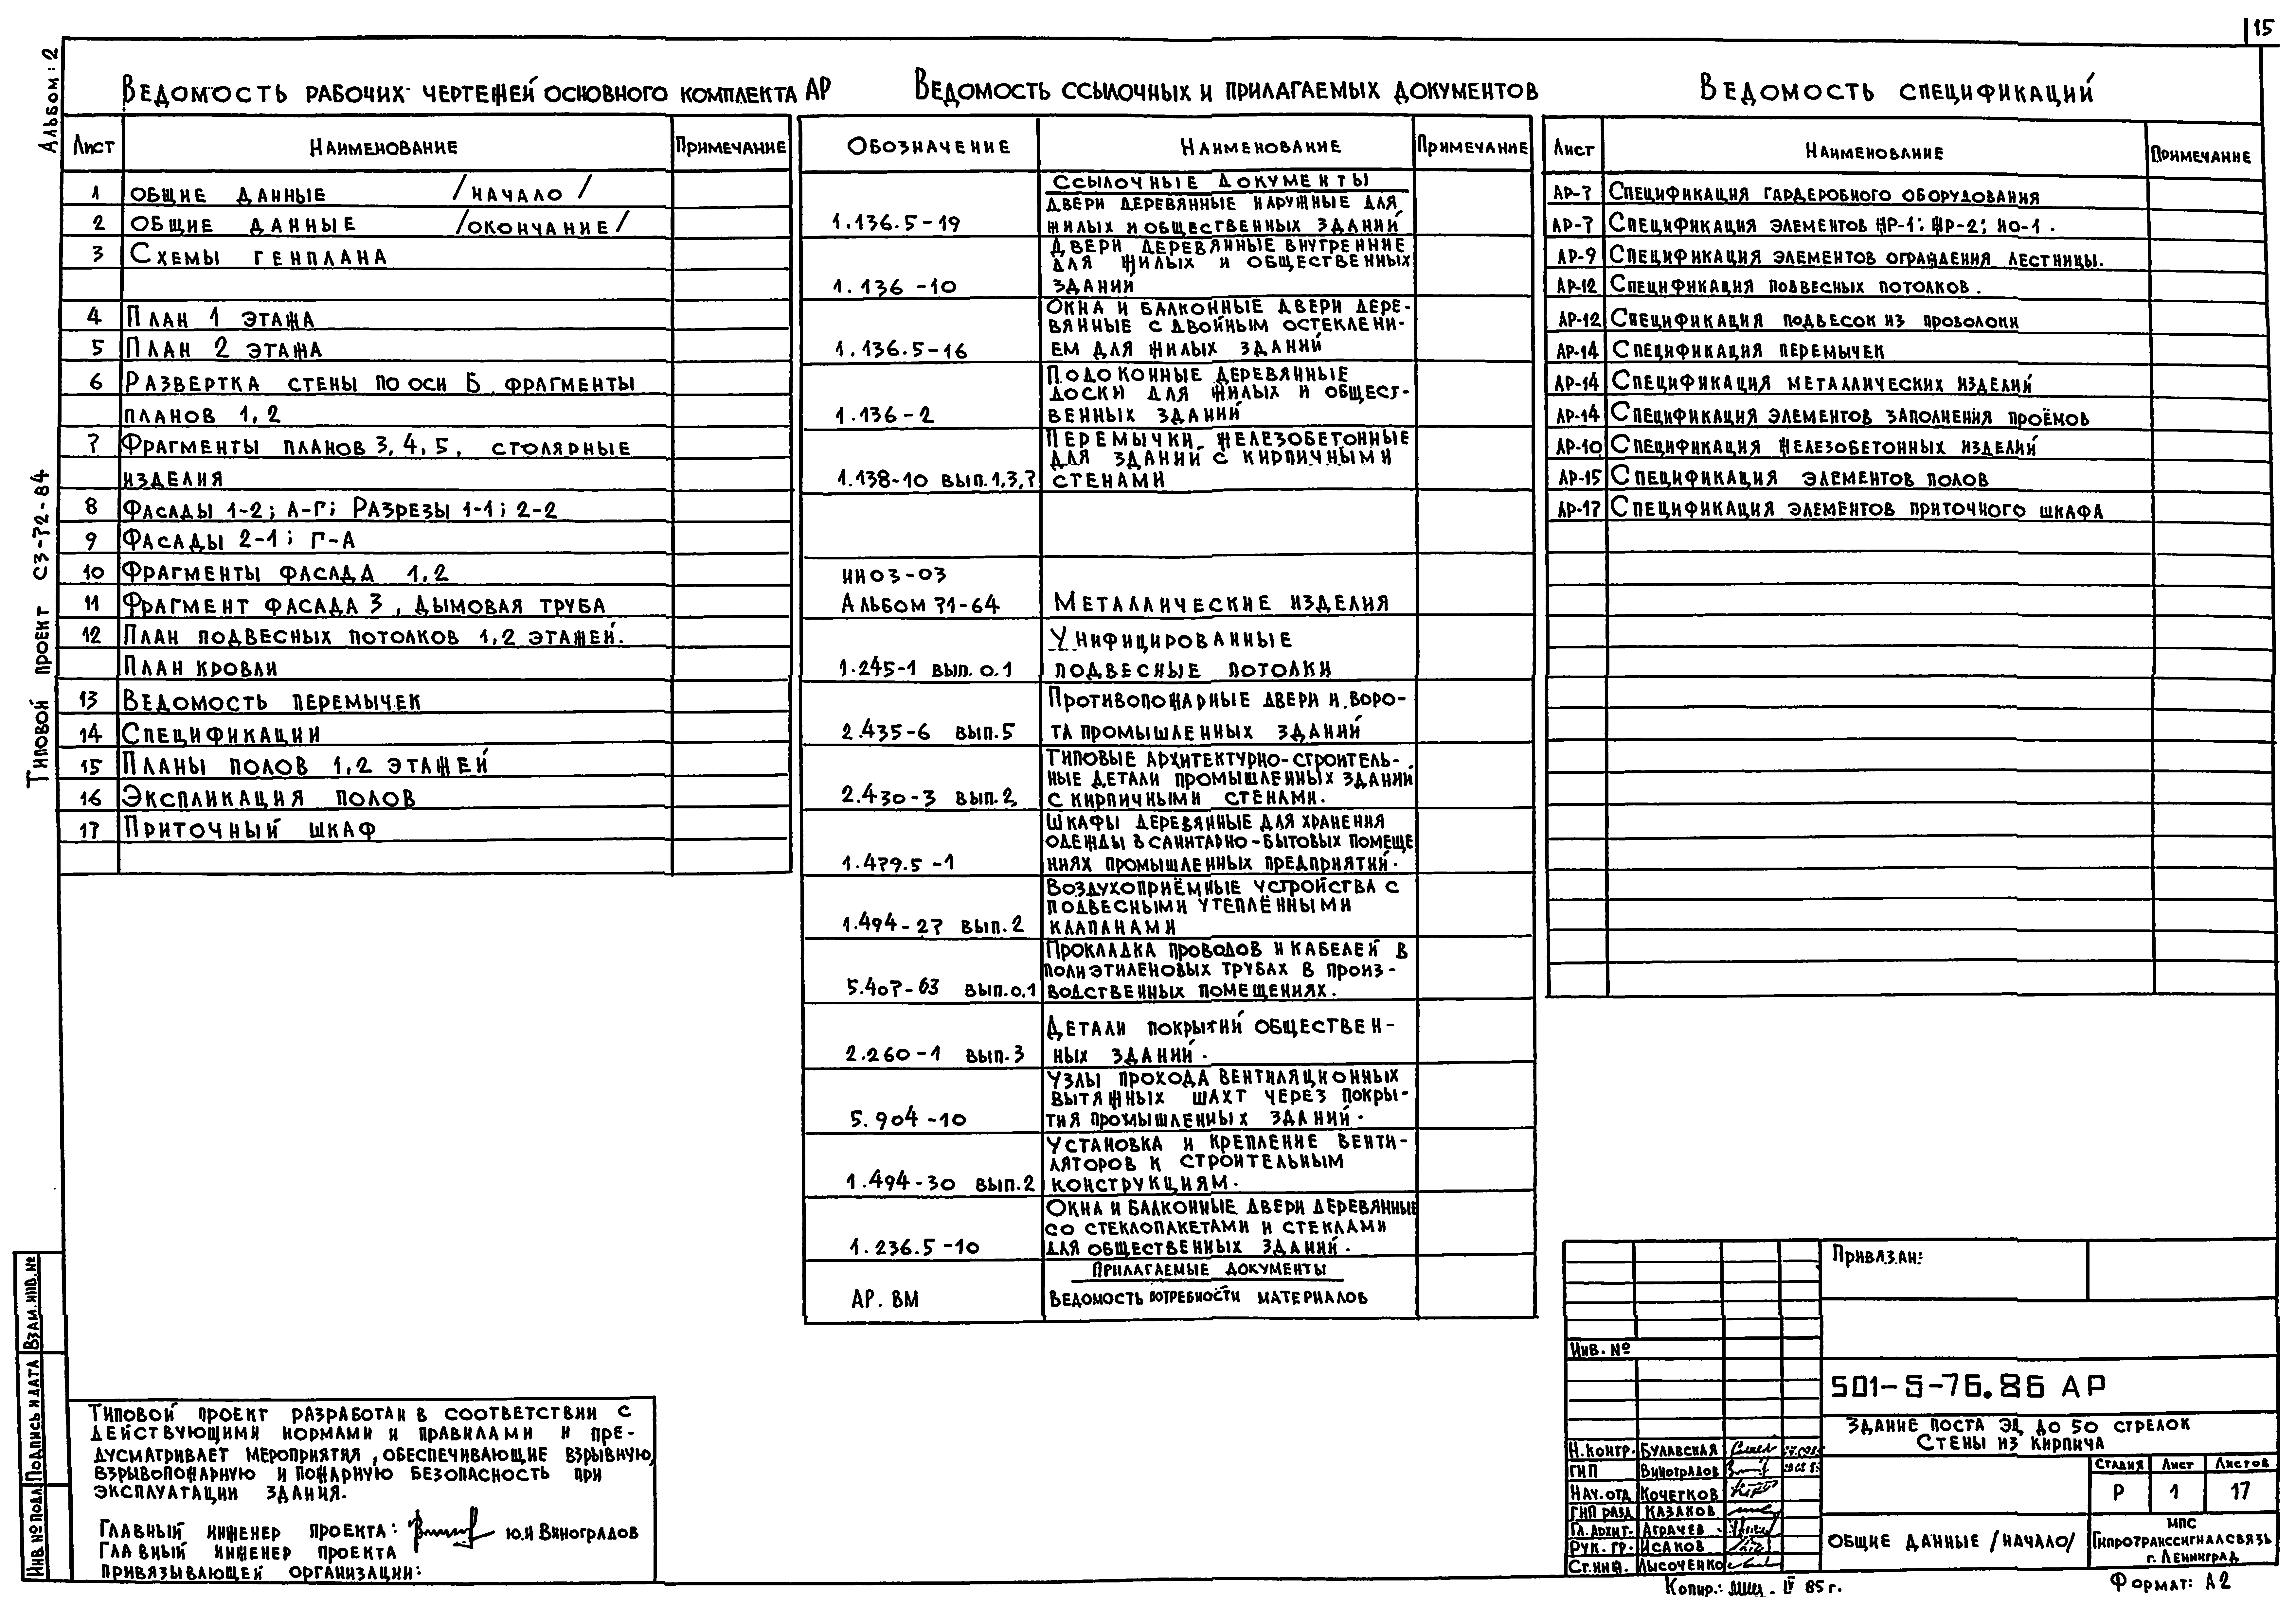 15
Альбом: 2
Типовой проект СЗ-72-84
Ведомость рабочих чертежей основного комплекта АР
Лист Наименование Примечание
1 Общие данные /начало/
2 Общие данные /окончание/
3 Схемы генплана
4 План 1 этажа
5 План 2 этажа
6 Развертка стены по оси Б, фрагменты
планов 1,2
7 Фрагменты планов 3,4,5, столярные
изделия
8 Фасады 1-2; А-Г; Разрезы 1-1; 2-2
9 Фасады 2-1; Г-А
10 Фрагменты фасада 1,2
11 Фрагмент фасада 3, дымовая труба
12 План подвесных потолков 1,2 этажей.
План кровли
13 Ведомость перемычек
14 Спецификации
15 Планы полов 1,2 этажей
16 Экспликация полов
17 Приточный шкаф
Ведомость ссылочных и прилагаемых документов
Обозначение Наименование Примечание
Ссылочные документы
Двери деревянные наружные для
1.136.5-19 жилых и общественных зданий
Двери деревянные внутренние
для жилых и общественных
1.136-10 зданий
Окна и балконные двери дере-
вянные с двойным остеклени-
1.136.5-16 ем для жилых зданий
Подоконные деревянные
доски для жилых и общест-
1.136-2 венных зданий
Перемычки железобетонные
для зданий с кирпичными
1.138-10 вып.1,3,7 стенами
ИИ03-03
Альбом 71-64 Металлические изделия
Унифицированные
1.245-1 вып.0.1 подвесные потолки
Противопожарные двери и воро-
2.435-6 вып.5 та промышленных зданий
Типовые архитектурно-строитель-
ные детали промышленных зданий
2.430-3 вып.2 с кирпичными стенами.
Шкафы деревянные для хранения
одежды в санитарно-бытовых помеще
1.479.5-1 ниях промышленных предприятий.
Воздухоприёмные устройства с
подвесными утеплёнными
1.494-27 вып.2 клапанами
Прокладка проводов и кабелей в
полиэтиленовых трубах в произ-
5.407-63 вып.0,1 водственных помещениях.
Детали покрытий обществен-
2.260-1 вып.3 ных зданий.
Узлы прохода вентиляционных
вытяжных шахт через покры-
5.904-10 тия промышленных зданий.
Установка и крепление венти-
ляторов к строительным
1.494-30 вып.2 конструкциям.
Окна и балконные двери деревянные
со стеклопакетами и стеклами
1.236.5-10 для общественных зданий.
Прилагаемые документы
АР. ВМ Ведомость потребности материалов
Ведомость спецификаций
Лист Наименование Примечание
АР-7 Спецификация гардеробного оборудования
АР-7 Спецификация элементов ЖР-1; ЖР-2; НО-1.
АР-9 Спецификация элементов ограждения лестницы.
АР-12 Спецификация подвесных потолков.
АР-12 Спецификация подвесок из проволоки
АР-14 Спецификация перемычек
АР-14 Спецификация металлических изделий
АР-14 Спецификация элементов заполнения проёмов
АР-10 Спецификация железобетонных изделий
АР-15 Спецификация элементов полов
АР-17 Спецификация элементов приточного шкафа
Типовой проект разработан в соответствии с
действующими нормами и правилами и пре-
дусматривает мероприятия, обеспечивающие взрывную,
взрывопожарную и пожарную безопасность при
эксплуатации здания.
Главный инженер проекта: Ю.И Виноградов
Главный инженер проекта
привязывающей организации:
Взам. инв. №
Подпись и дата
Инв № подл
Привязан:
Инв. №
501-5-76.86 АР
Здание поста ЭЦ до 50 стрелок
Стены из кирпича
Н.контр. Булавская
ГИП Виноградов
Нач.отд Кочетков
ГИП разд Казаков
Гл.архит. Аграчев
Рук. гр. Исаков
Ст.инж. Лысоченко
Стадия Лист Листов
Р 1 17
Общие данные /начало/
МПС
Гипротранссигналсвязь
г. Ленинград
Копир.: IV 85 г.
Формат: А2